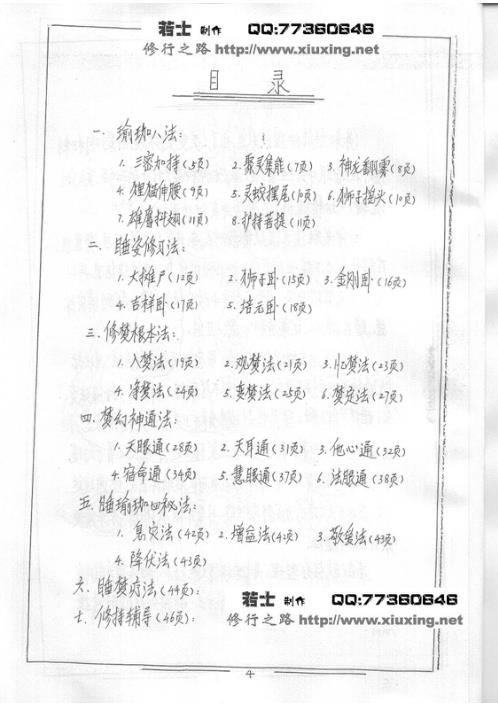 若士 制作 QQ:77360646
修行之路 http://www.xiuxing.net
目 录
一、瑜珈八法:
1. 三密加持(5页) 2. 聚灵集能(7页) 3. 神龙翻云雾(8页)
4. 狸猫伸腰(9页) 5. 灵蛇摆尾(10页) 6. 狮子摇头(10页)
7. 雄鹰抖翅(11页) 8. 护持菩提(11页)
二、睡姿修习法:
1. 大摊尸(12页) 2. 狮子卧(15页) 3. 金刚卧(16页)
4. 吉祥卧(17页) 5. 培元卧(18页)
三、修梦根本法:
1. 入梦法(19页) 2. 观梦法(21页) 3. 忆梦法(23页)
4. 净梦法(24页) 5. 变梦法(25页) 6. 梦灵法(27页)
四、梦幻神通法:
1. 天眼通(28页) 2. 天耳通(31页) 3. 他心通(32页)
4. 宿命通(34页) 5. 慧眼通(37页) 6. 法眼通(38页)
五、睡瑜珈四秘法:
1. 息灾法(42页) 2. 增益法(42页) 3. 敬爱法(43页)
4. 降伏法(43页)
六、睡梦疗法(44页):
七、修持辅导(46页):
若士 制作 QQ:77360646
修行之路 http://www.xiuxing.net
4